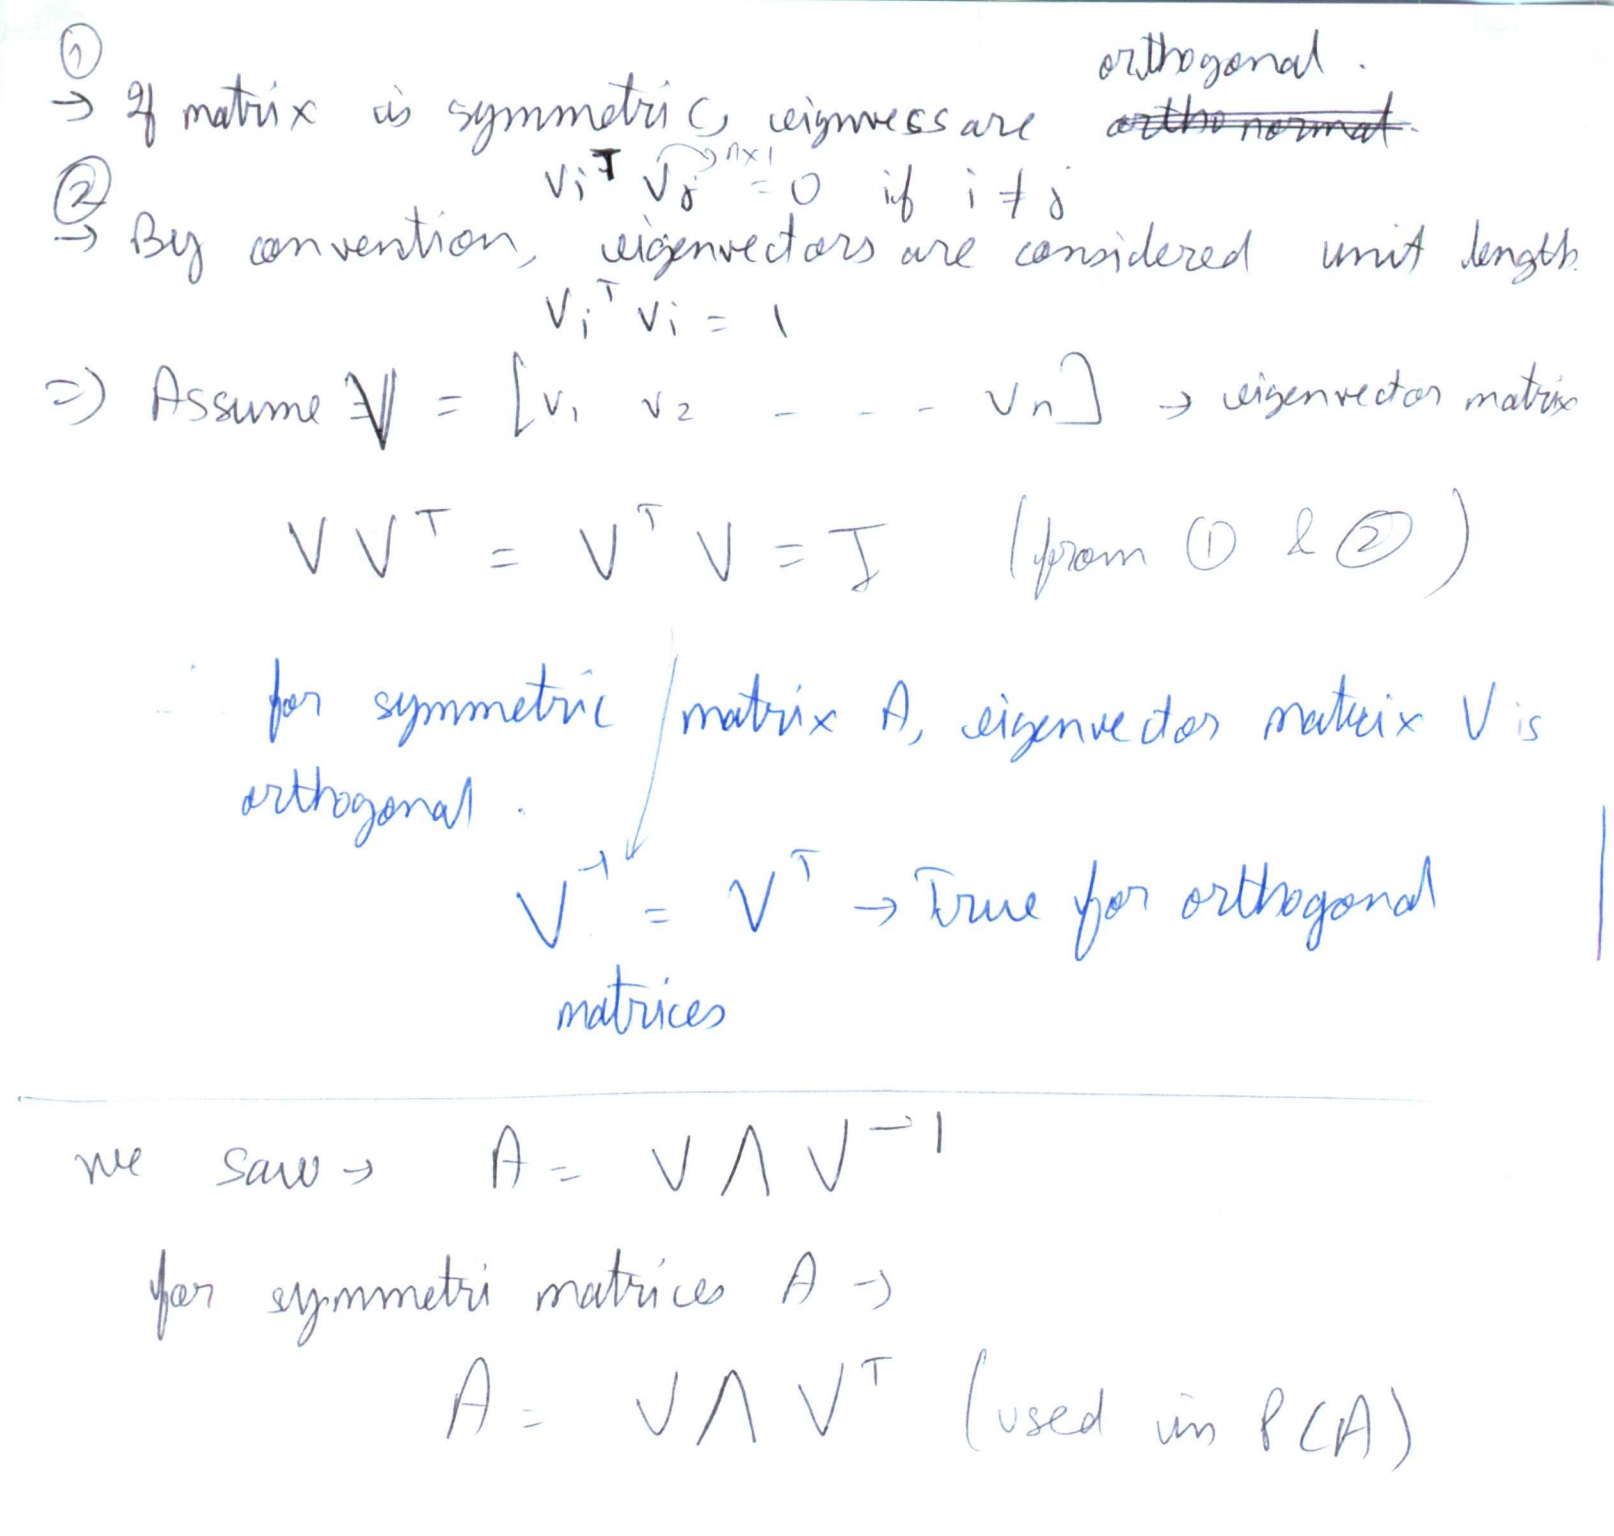 ①
orthogonal.
→ If matrix is symmetric, eignvecs are ortho normal.
vᵢᵀ vⱼ n×1 = 0 if i ≠ j
②
→ By convention, eigenvectors are considered unit length.
vᵢᵀ vᵢ = 1
=> Assume V = [v₁ v₂ - - - vₙ] → eigenvector matrix
V Vᵀ = Vᵀ V = I (from ① & ②)
∴ for symmetric matrix A, eigenvector matrix V is
orthogonal.
V⁻¹ = Vᵀ → True for orthogonal
matrices
we saw → A = V Λ V⁻¹
for symmetri matrices A →
A = V Λ Vᵀ (used in PCA)